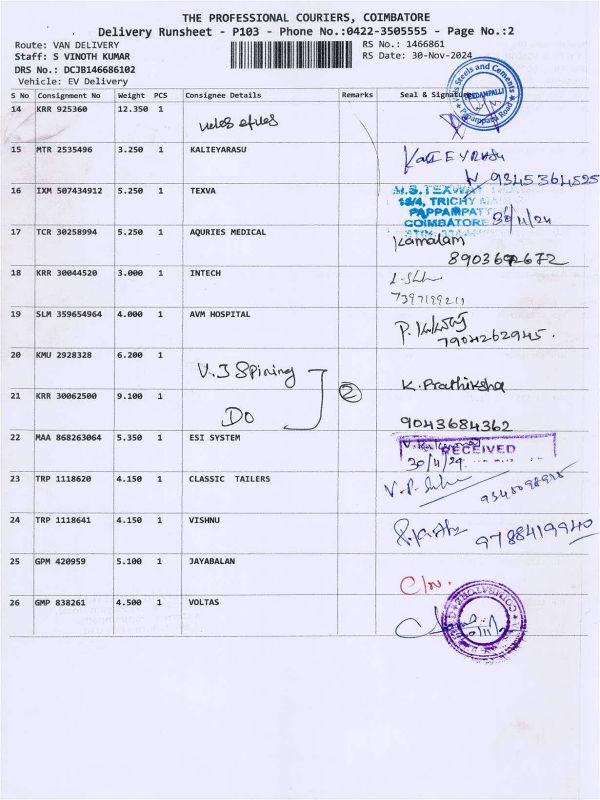 THE PROFESSIONAL COURIERS, COIMBATORE
Delivery Runsheet - P103 - Phone No.:0422-3505555 - Page No.:2
Route: VAN DELIVERY
RS No.: 1466861
Staff: S VINOTH KUMAR
RS Date: 30-Nov-2024
DRS No.: DCJB146686102
Vehicle: EV Delivery
S No Consignment No Weight PCS Consignee Details Remarks Seal & Signature
Steels and Cements
PEEDAMPALLI
Pappampatti Road
14 KRR 925360 12.350 1
15 MTR 2535496 3.250 1 KALIEYARASU KALIEYRASU
9345364525
16 IXM 507434912 5.250 1 TEXVA
M.S.TEXWAY
18/4, TRICHY MAIN
PAPPAMPATTI
COIMBATORE
30/11/24
17 TCR 30258994 5.250 1 AQURIES MEDICAL Kamalam
8903692672
18 KRR 30044520 3.000 1 INTECH
7397199211
19 SLM 359654964 4.000 1 AVM HOSPITAL
7904262945.
20 KMU 2928328 6.200 1
V.J Spining
2
K. Prathiksha
21 KRR 30062500 9.100 1
Do
9043684362
22 MAA 868263064 5.350 1 ESI SYSTEM
RECEIVED
30/11/24
23 TRP 1118620 4.150 1 CLASSIC TAILERS
24 TRP 1118641 4.150 1 VISHNU
9788419940
25 GPM 420959 5.100 1 JAYABALAN
C/N.
26 GMP 838261 4.500 1 VOLTAS
COIMBATORE